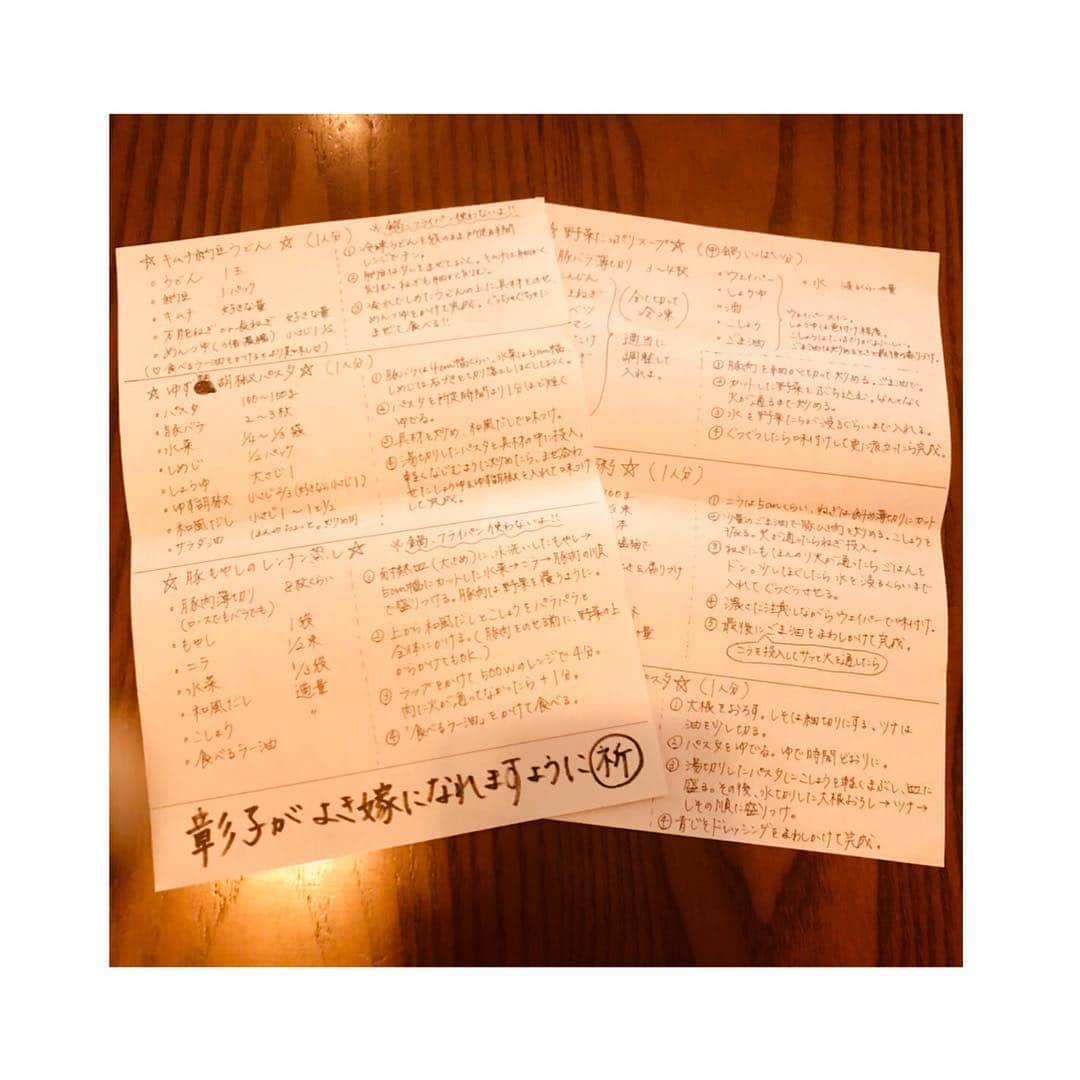 ☆ キムチ納豆うどん ☆ (1人分)
・うどん 1玉
・納豆 1パック
・キムチ 好きな量
・万能ねぎ or 長ねぎ 好きな量
・めんつゆ(3倍濃縮) 小さじ1/2
(♡食べるラー油をかけるとより美味し♡)
※鍋、フライパン使わないよ!!
① 冷凍うどんを袋のまま
レンジでチン。
② 納豆はタレとまぜておく。キムチは細かく
きざむ。ねぎも細かくきざむ。
③ 流水でしめたうどんの上に具材をのせ
めんつゆをかけて完成。ぐっちゃぐちゃに
まぜて食べる!!
☆ ゆず胡椒パスタ ☆ (1人分)
・パスタ 100〜120g
・豚バラ 2〜3枚
・水菜 1/4〜1/3袋
・しめじ 1/2パック
・しょうゆ 大さじ1
・ゆず胡椒 小さじ2/3(好きなら小さじ1)
・和風だし 小さじ1〜1と1/2
・サラダ油 ほんのちょっと。炒め用
① 豚バラは4cm幅くらい、水菜は5cm幅、
しめじは石づきを切り落としほぐしておく。
② パスタを所定時間より1分ほど短く
ゆでる。
③ 具材を炒め、和風だしで味つけ。
④ 湯切りしたパスタを具材の中に投入。
軽くなじむように炒めたら、まぜ合わ
せたしょうゆ&ゆず胡椒を入れて味つけ
して完成。
☆ 豚もやしのレンチン蒸し ☆
・豚肉薄切り 8枚くらい
(ロースでもバラでも)
・もやし 1袋
・ニラ 1/2束
・水菜 1/3袋
・和風だし 適量
・こしょう 〃
・食べるラー油
※鍋、フライパン使わないよ!!
① 耐熱皿(大きめ)に水洗いしたもやし→
5cm幅にカットした水菜→ニラ→豚肉の順
で盛りつける。豚肉は野菜を覆うように。
② 上から和風だしとこしょうをパラパラと
全体にかける。(豚肉をのせる前に、野菜の上
からかけてもOK)
③ ラップをかけて500Wのレンジで4分。
肉に火が通ってなかったら+1分。
④ 「食べるラー油」をかけて食べる。
彰子がよき嫁になれますように㊗
野菜たっぷりスープ ☆ (中鍋いっぱい分)
豚バラ薄切り 3〜4枚
んじん
まねぎ
ベツ
マン
たけ
(全て切って冷凍)
適当に
調整して
入れよ。
・ウェイパー
・しょうゆ
・酒
・こしょう
・ごま油
・水 浸るくらいの量
ウェイパーメイン。
しょうゆは色付け程度。
こしょうはたっぷりがおいしい。
ごま油は炒めるときと最後の香りづけ。
① 豚肉を細かく切って炒める。ごま油で。
② カットした野菜をぶち込む。なんとなく
火が通るまで炒める。
③ 水を野菜たちが浸るぐらいまで入れる。
④ ぐつぐつしたら味付けして更に沸立ったら完成。
☆ (1人分)
① ニラは5cmくらい、ねぎは斜め薄切りにカット
② 少量のごま油で豚ひき肉を炒める。こしょうを
振る。火が通ったらねぎ投入。
③ ねぎにもほんのり火が通いたらごはんを
ドン。少しほぐしたら水を浸るくらいまで
入れてぐつぐつさせる。
④ 濃さに注意しながらウェイパーで味付け。
⑤ 最後にごま油をまわしかけて完成。
ニラを投入してサッと火を通したら
スタ☆ (1人分)
① 大根をおろす。しそは細切りにする。ツナは
油を少し切る。
② パスタをゆでる。ゆで時間どおりに。
③ 湯切りしたパスタにこしょうを軽くまぶし、皿に
盛る。その後、水切りした大根おろし→ツナ→
しその順に盛りつけ。
④ 青じそドレッシングをまわしかけて完成。